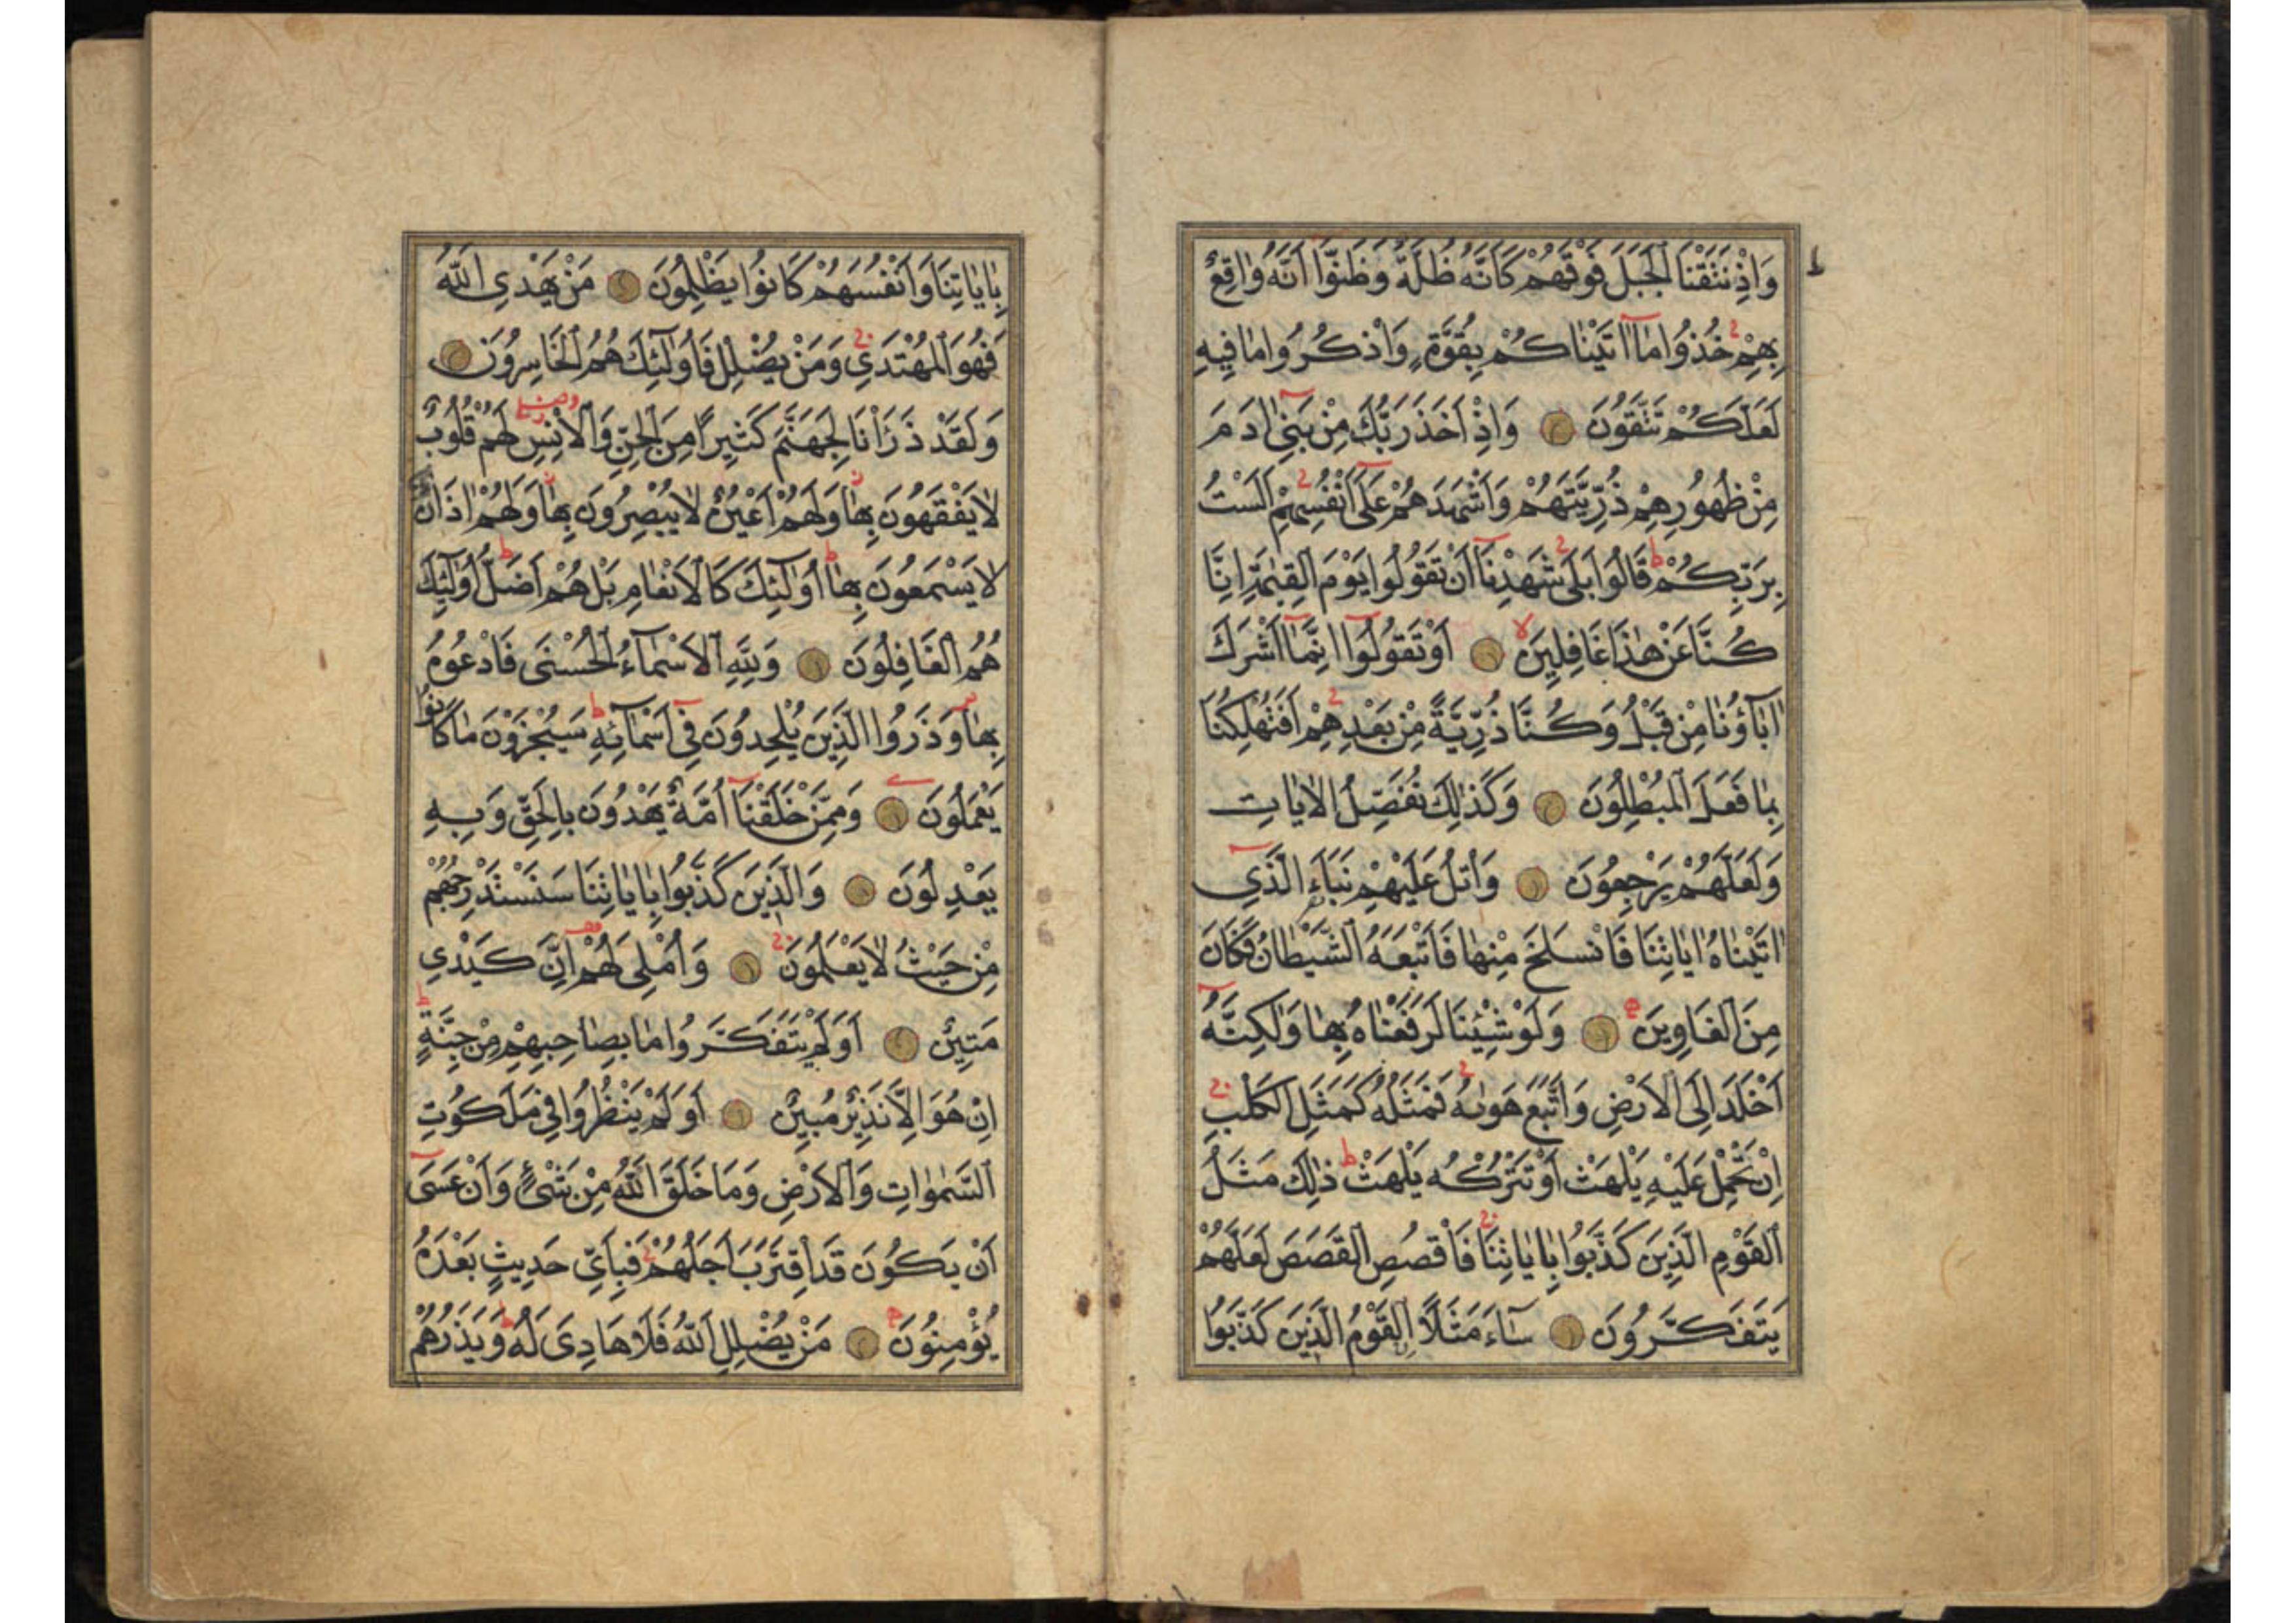 وَاِذْ نَتَقْنَا الْجَبَلَ فَوْقَهُمْ كَاَنَّهُ ظُلَّةٌ وَظَنُّوا اَنَّهُ وَاقِعٌ
بِهِمْ خُذُوا مَا اٰتَيْنَاكُمْ بِقُوَّةٍ وَاذْكُرُوا مَا فِيهِ
لَعَلَّكُمْ تَتَّقُونَ وَاِذْ اَخَذَ رَبُّكَ مِنْ بَنِي اٰدَمَ
مِنْ ظُهُورِهِمْ ذُرِّيَّتَهُمْ وَاَشْهَدَهُمْ عَلَى اَنْفُسِهِمْ اَلَسْتُ
بِرَبِّكُمْ قَالُوا بَلَى شَهِدْنَا اَنْ تَقُولُوا يَوْمَ الْقِيٰمَةِ اِنَّا
كُنَّا عَنْ هٰذَا غَافِلِينَ اَوْ تَقُولُوا اِنَّمَا اَشْرَكَ
اٰبَاؤُنَا مِنْ قَبْلُ وَكُنَّا ذُرِّيَّةً مِنْ بَعْدِهِمْ اَفَتُهْلِكُنَا
بِمَا فَعَلَ الْمُبْطِلُونَ وَكَذٰلِكَ نُفَصِّلُ الْاٰيَاتِ
وَلَعَلَّهُمْ يَرْجِعُونَ وَاتْلُ عَلَيْهِمْ نَبَاَ الَّذِي
اٰتَيْنَاهُ اٰيَاتِنَا فَانْسَلَخَ مِنْهَا فَاَتْبَعَهُ الشَّيْطَانُ فَكَانَ
مِنَ الْغَاوِينَ وَلَوْ شِئْنَا لَرَفَعْنَاهُ بِهَا وَلٰكِنَّهُ
اَخْلَدَ اِلَى الْاَرْضِ وَاتَّبَعَ هَوٰيهُ فَمَثَلُهُ كَمَثَلِ الْكَلْبِ
اِنْ تَحْمِلْ عَلَيْهِ يَلْهَثْ اَوْ تَتْرُكْهُ يَلْهَثْ ذٰلِكَ مَثَلُ
الْقَوْمِ الَّذِينَ كَذَّبُوا بِاٰيَاتِنَا فَاقْصُصِ الْقَصَصَ لَعَلَّهُمْ
يَتَفَكَّرُونَ سَاءَ مَثَلًا الْقَوْمُ الَّذِينَ كَذَّبُوا
بِاٰيَاتِنَا وَاَنْفُسَهُمْ كَانُوا يَظْلِمُونَ مَنْ يَهْدِي اللّٰهُ
فَهُوَ الْمُهْتَدِي وَمَنْ يُضْلِلْ فَاُولٰئِكَ هُمُ الْخَاسِرُونَ
وَلَقَدْ ذَرَاْنَا لِجَهَنَّمَ كَثِيرًا مِنَ الْجِنِّ وَالْاِنْسِ لَهُمْ قُلُوبٌ
لَا يَفْقَهُونَ بِهَا وَلَهُمْ اَعْيُنٌ لَا يُبْصِرُونَ بِهَا وَلَهُمْ اٰذَانٌ
لَا يَسْمَعُونَ بِهَا اُولٰئِكَ كَالْاَنْعَامِ بَلْ هُمْ اَضَلُّ اُولٰئِكَ
هُمُ الْغَافِلُونَ وَلِلّٰهِ الْاَسْمَاءُ الْحُسْنَى فَادْعُوهُ
بِهَا وَذَرُوا الَّذِينَ يُلْحِدُونَ فِي اَسْمَائِهِ سَيُجْزَوْنَ مَا كَانُوا
يَعْمَلُونَ وَمِمَّنْ خَلَقْنَا اُمَّةٌ يَهْدُونَ بِالْحَقِّ وَبِهِ
يَعْدِلُونَ وَالَّذِينَ كَذَّبُوا بِاٰيَاتِنَا سَنَسْتَدْرِجُهُمْ
مِنْ حَيْثُ لَا يَعْلَمُونَ وَاُمْلِي لَهُمْ اِنَّ كَيْدِي
مَتِينٌ اَوَلَمْ يَتَفَكَّرُوا مَا بِصَاحِبِهِمْ مِنْ جِنَّةٍ
اِنْ هُوَ اِلَّا نَذِيرٌ مُبِينٌ اَوَلَمْ يَنْظُرُوا فِي مَلَكُوتِ
السَّمٰوَاتِ وَالْاَرْضِ وَمَا خَلَقَ اللّٰهُ مِنْ شَيْءٍ وَاَنْ عَسَى
اَنْ يَكُونَ قَدِ اقْتَرَبَ اَجَلُهُمْ فَبِاَيِّ حَدِيثٍ بَعْدَهُ
يُؤْمِنُونَ مَنْ يُضْلِلِ اللّٰهُ فَلَا هَادِيَ لَهُ وَيَذَرُهُمْ